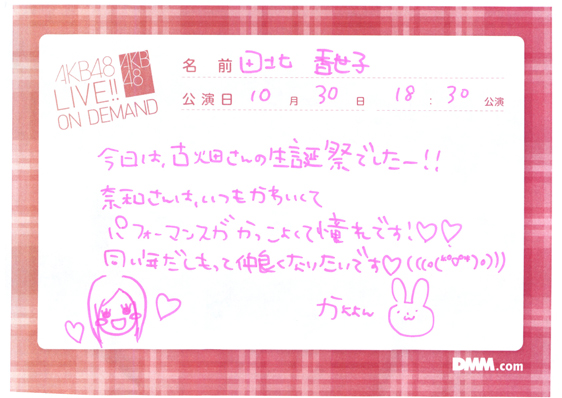 AKB48
LIVE!!
ON DEMAND
AKB
48
名前 田北 香世子
公演日 10月30日 18:30公演
今日は、古畑さんの生誕祭でしたー!!
奈和さんは、いつもかわいくて
パフォーマンスがかっこよくて憧れです!♡♡
同い年だしもって仲良くなりたいです♡(((o(*°▽°*)o)))
かよよん
DMM.com